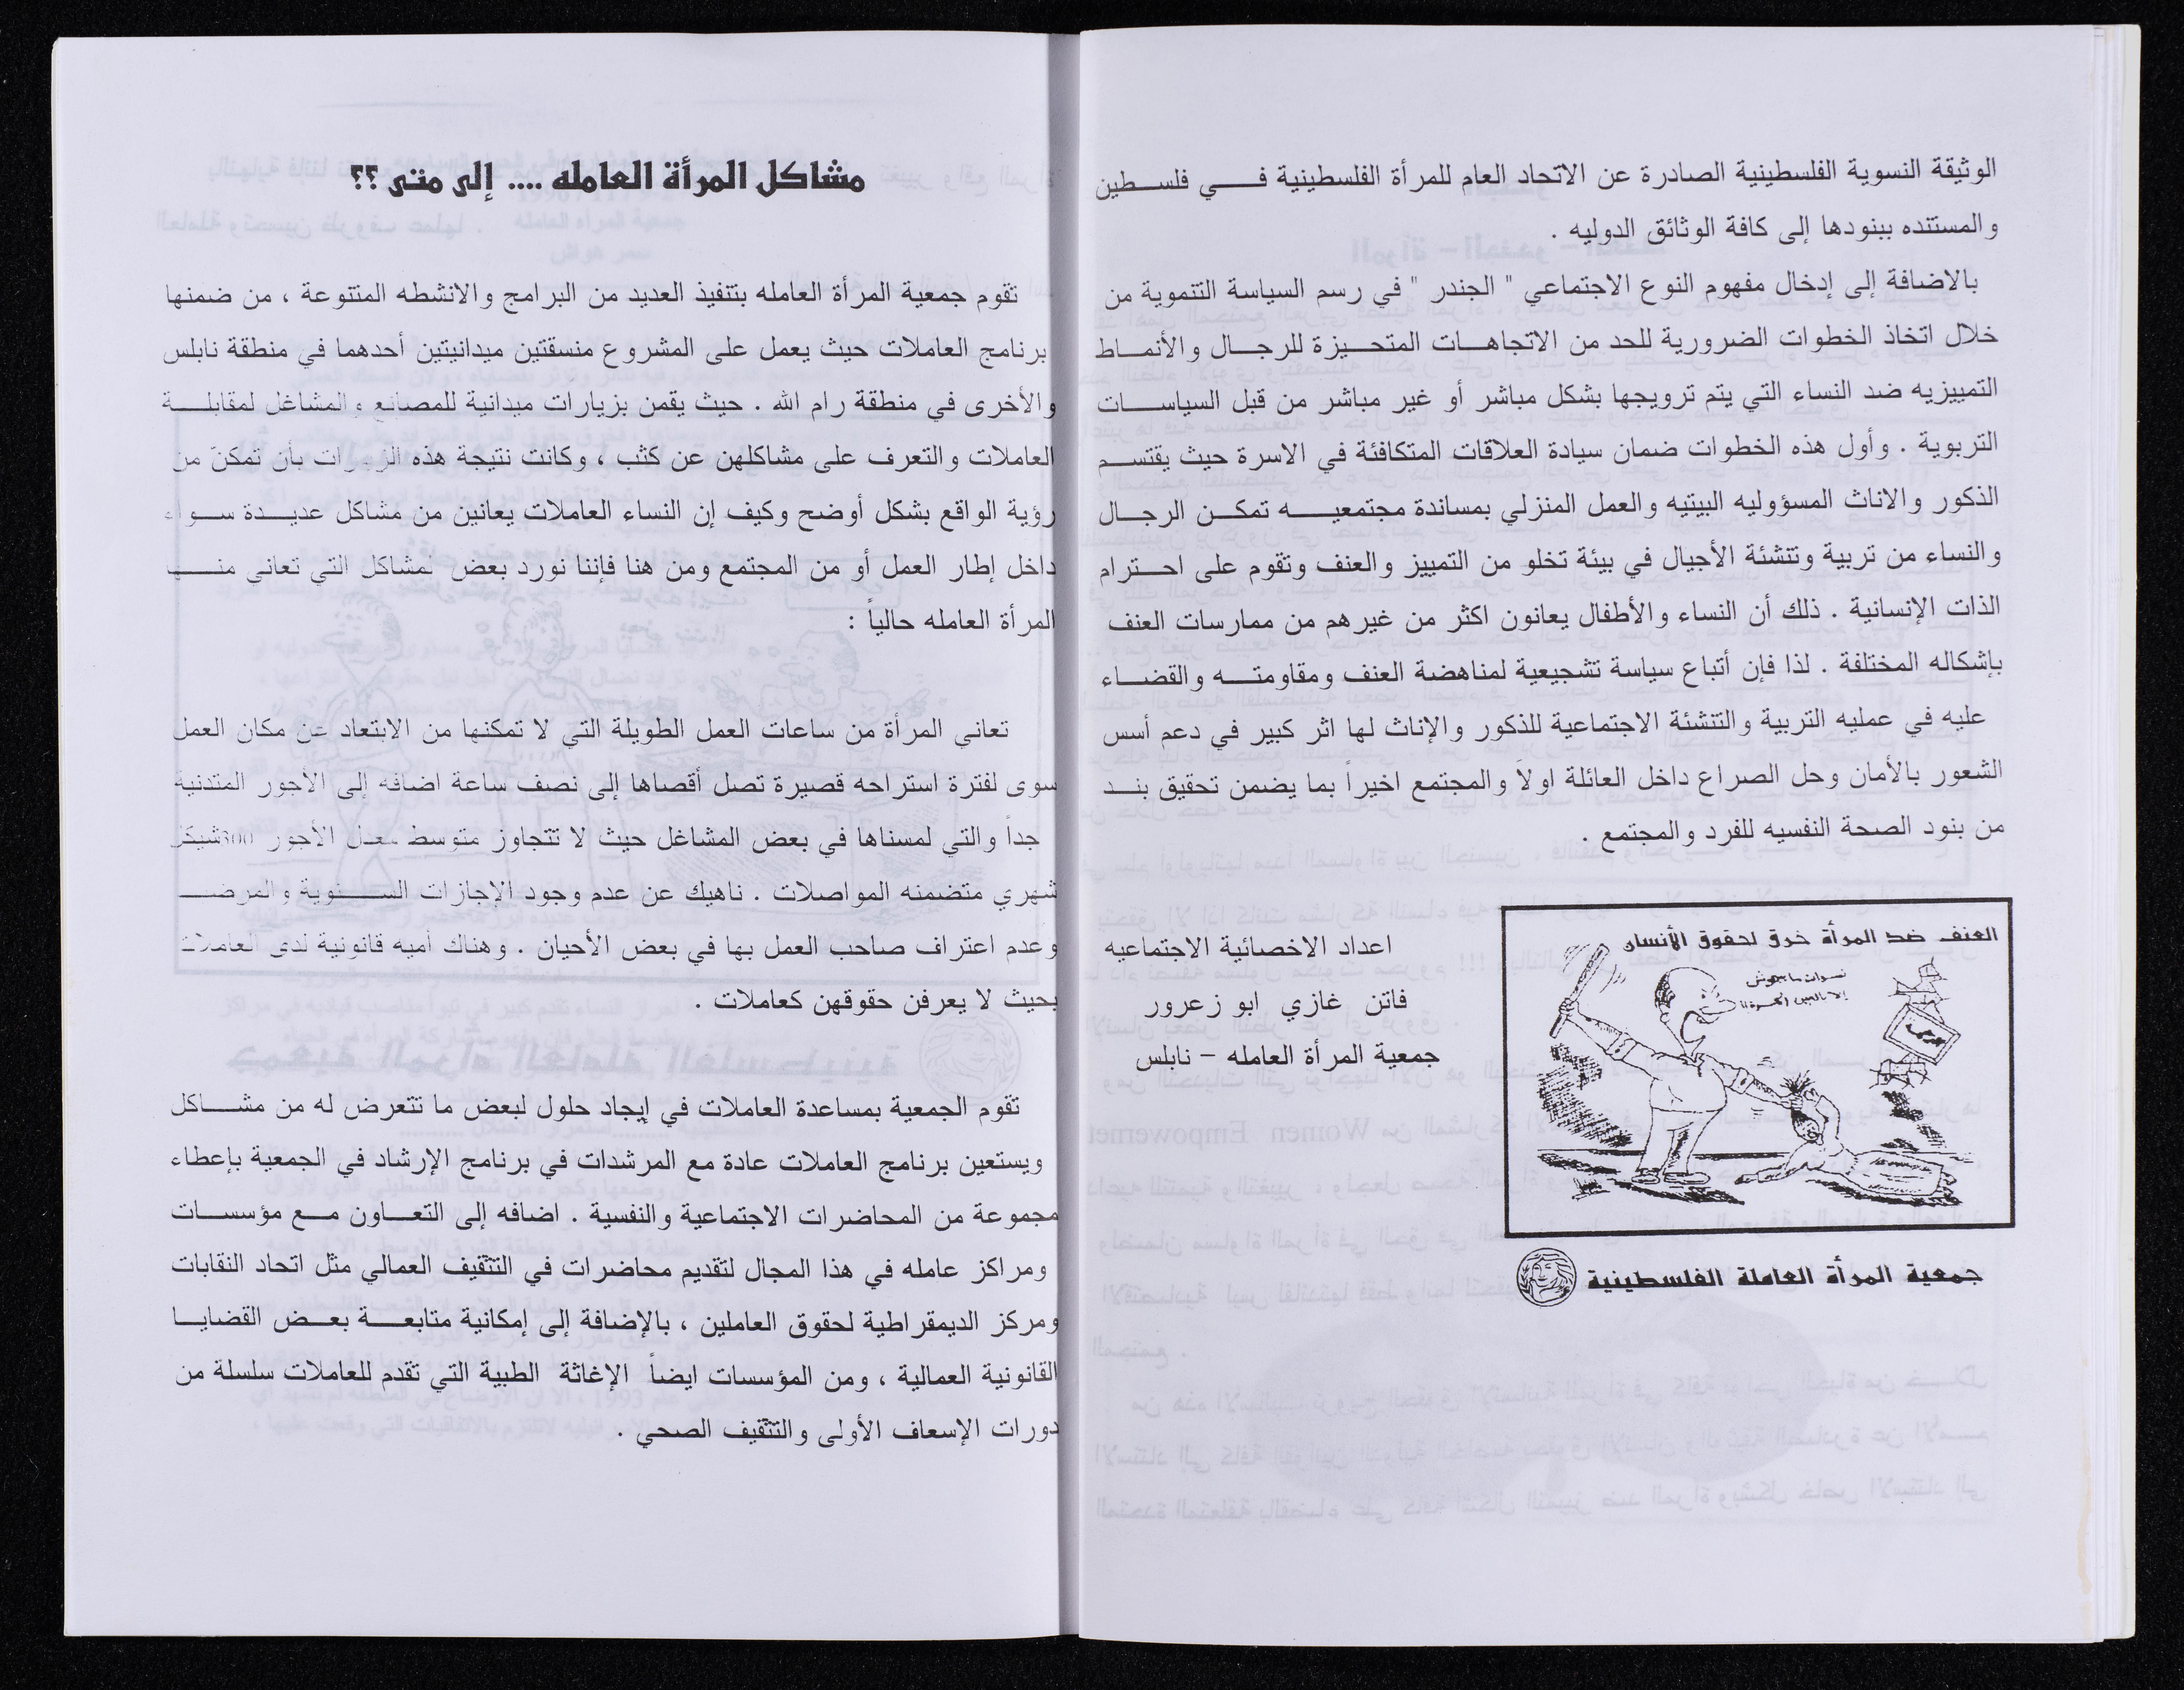 الوثيقة النسوية الفلسطينية الصادرة عن الاتحاد العام للمرأة الفلسطينية في فلسطين
والمستنده ببنودها إلى كافة الوثائق الدوليه .
بالاضافة إلى إدخال مفهوم النوع الاجتماعي " الجندر " في رسم السياسة التنموية من
خلال اتخاذ الخطوات الضرورية للحد من الاتجاهات المتحيزة للرجال والأنماط
التمييزيه ضد النساء التي يتم ترويجها بشكل مباشر أو غير مباشر من قبل السياسات
التربوية . وأول هذه الخطوات ضمان سيادة العلاقات المتكافئة في الاسرة حيث يقتسم
الذكور والاناث المسؤوليه البيتيه والعمل المنزلي بمساندة مجتمعيه تمكن الرجال
والنساء من تربية وتنشئة الأجيال في بيئة تخلو من التمييز والعنف وتقوم على احترام
الذات الإنسانية . ذلك أن النساء والأطفال يعانون اكثر من غيرهم من ممارسات العنف
بإشكاله المختلفة . لذا فإن أتباع سياسة تشجيعية لمناهضة العنف ومقاومته والقضاء
عليه في عمليه التربية والتنشئة الاجتماعية للذكور والإناث لها اثر كبير في دعم أسس
الشعور بالأمان وحل الصراع داخل العائلة اولاً والمجتمع اخيراً بما يضمن تحقيق بند
من بنود الصحة النفسيه للفرد والمجتمع .
العنف ضد المرأة خرق لحقوق الأنسان
نسوان ما بيجوش
إلا بالعين الحمرة !!
جمعية المرأة العاملة الفلسطينية
اعداد الاخصائية الاجتماعيه
فاتن غازي ابو زعرور
جمعية المرأة العامله – نابلس
مشاكل المرأة العامله .... إلى متى ؟؟
تقوم جمعية المرأة العامله بتنفيذ العديد من البرامج والانشطه المتنوعة ، من ضمنها
برنامج العاملات حيث يعمل على المشروع منسقتين ميدانيتين أحدهما في منطقة نابلس
والأخرى في منطقة رام الله . حيث يقمن بزيارات ميدانية للمصانع والمشاغل لمقابلة
العاملات والتعرف على مشاكلهن عن كثب ، وكانت نتيجة هذه الزيارات بأن تمكنّ من
رؤية الواقع بشكل أوضح وكيف إن النساء العاملات يعانين من مشاكل عديدة سواء
داخل إطار العمل أو من المجتمع ومن هنا فإننا نورد بعض المشاكل التي تعاني منها
المرأة العامله حالياً :
تعاني المرأة من ساعات العمل الطويلة التي لا تمكنها من الابتعاد عن مكان العمل
سوى لفترة استراحه قصيرة تصل أقصاها إلى نصف ساعة اضافه إلى الأجور المتدنية
جداً والتي لمسناها في بعض المشاغل حيث لا تتجاوز متوسط معدل الأجور شيكل
شهري متضمنه المواصلات . ناهيك عن عدم وجود الإجازات السنوية والمرضية
وعدم اعتراف صاحب العمل بها في بعض الأحيان . وهناك أميه قانونية لدى العاملات
بحيث لا يعرفن حقوقهن كعاملات .
تقوم الجمعية بمساعدة العاملات في إيجاد حلول لبعض ما تتعرض له من مشاكل
ويستعين برنامج العاملات عادة مع المرشدات في برنامج الإرشاد في الجمعية بإعطاء
مجموعة من المحاضرات الاجتماعية والنفسية . اضافه إلى التعاون مع مؤسسات
ومراكز عامله في هذا المجال لتقديم محاضرات في التثقيف العمالي مثل اتحاد النقابات
ومركز الديمقراطية لحقوق العاملين ، بالإضافة إلى إمكانية متابعة بعض القضايا
القانونية العمالية ، ومن المؤسسات ايضاً الإغاثة الطبية التي تقدم للعاملات سلسلة من
دورات الإسعاف الأولى والتثقيف الصحي .